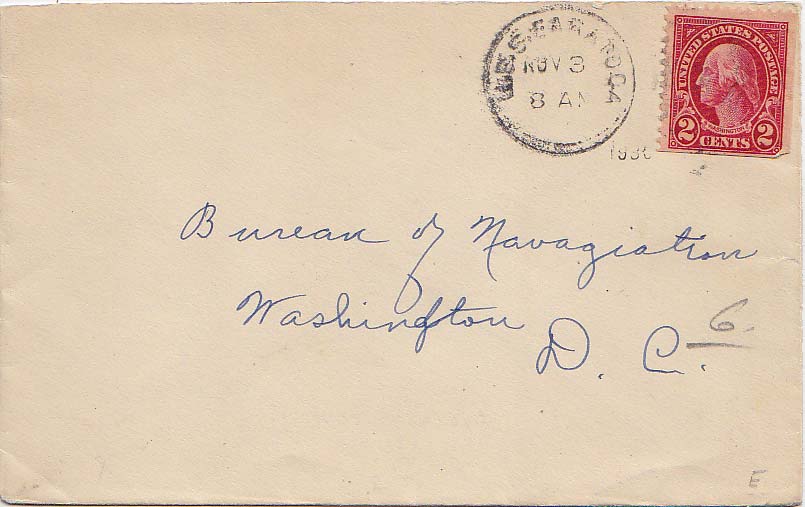 U.S.S. SARATOGA
NOV 3
8 AM
1930
UNITED STATES POSTAGE
WASHINGTON
2 CENTS 2
Bureau of Navagiation
Washington
D. C.
6
E